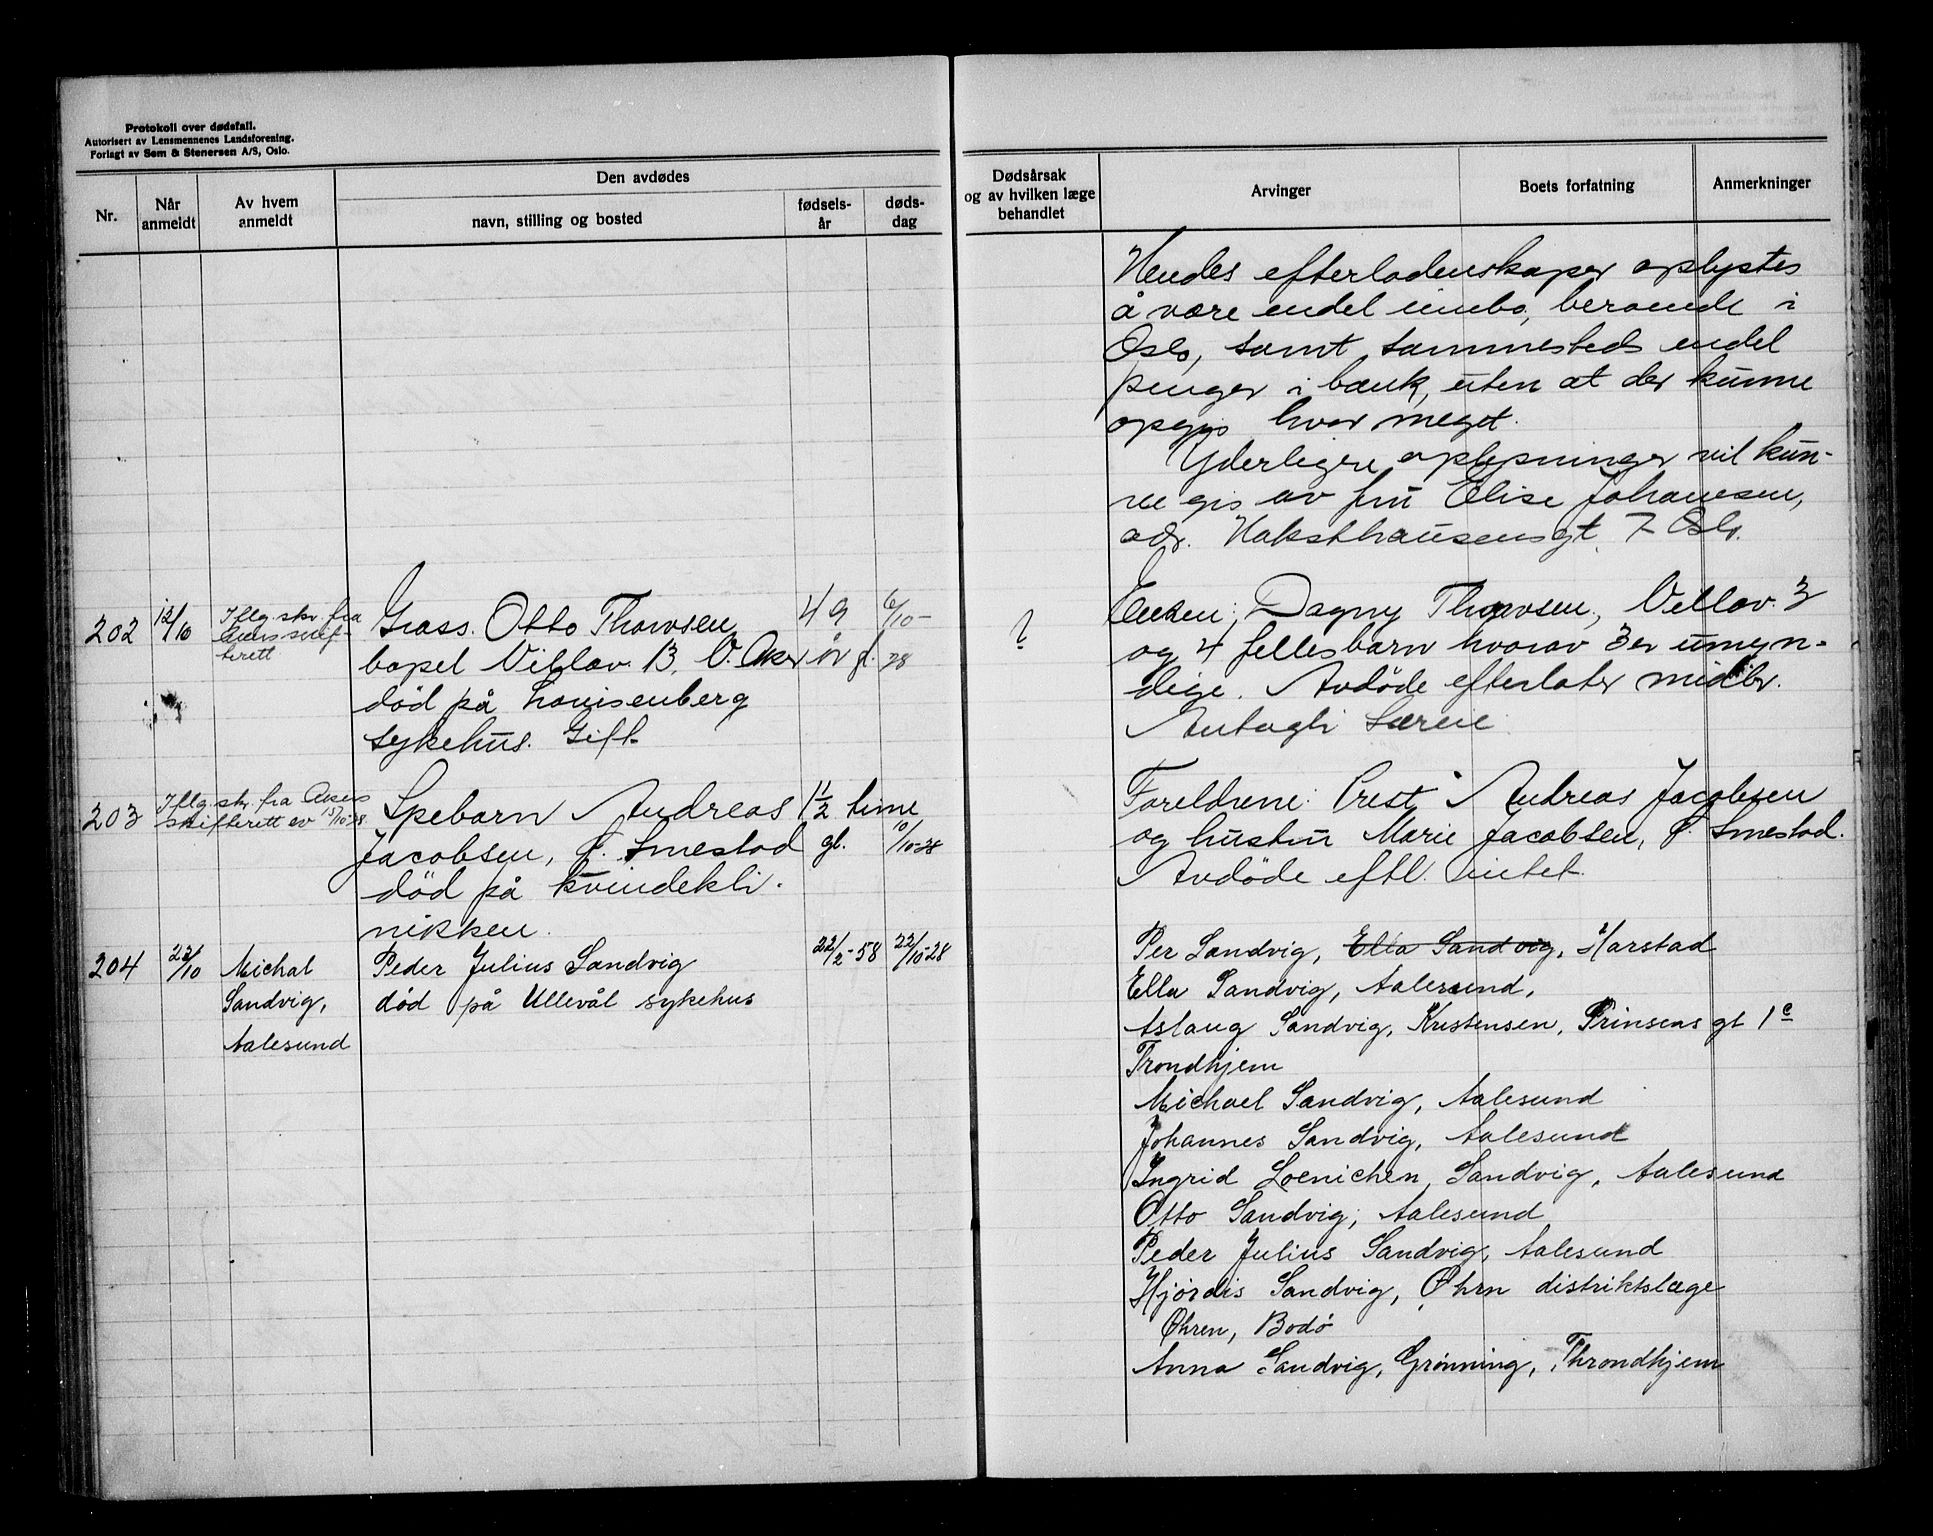 Protokoll over dødsfall.
Autorisert av Lensmennenes Landsforening.
Forlagt av Sem & Stenersen A/S, Oslo.
Nr.
Når anmeldt
Av hvem anmeldt
Den avdødes
navn, stilling og bosted
fødsels-
år
døds-
dag
Dødsårsak
og av hvilken læge
behandlet
Arvinger
Boets forfatning
Anmerkninger
Hendes efterladenskaper oplystes
å være endel innbo, beroende i
Oslo, samt sammesteds endel
penger i bank, uten at der kunne
opgis hvor meget.
Yderligere oplysninger vil kun-
ne gis av fru Elise Johanesen,
adr. Haksthausensgt. 7 Oslo.
202
12/10
Iflg. skr. fra
Akers skif-
terett
Gross. Otto Thowsen
bopel Villav. 13, V. Aker
død på Lovisenberg
sykehus. Gift.
49
år gl.
6/10-
28
?
Enken: Dagny Thowsen, Villav. 3
og 4 fellesbarn hvorav 3 er umyn-
dige. Avdøde efterlater midler.
Antagli særeie
203
Iflg. skr. fra Akers
skifterett av 15/10-28
Spebarn Andreas
Jacobsen, Smestad
død på kvindekli-
nikken.
1 1/2 time
gl.
10/10-28
Foreldrene: Andreas Jacobsen
og hustru Marie Jacobsen, Smestad.
Avdøde eftl. intet.
204
22/10
Michal
Sandvig,
Aalesund
Peder Julius Sandvig
død på Ullevål sykehus
22/2-58
22/10-28
Per Sandvig, Ella Sandvig, Harstad
Ella Sandvig, Aalesund,
Aslaug Sandvig, Kristensen, Prinsens gt 1c
Trondhjem
Michael Sandvig, Aalesund
Johannes Sandvig, Aalesund
Ingrid Loenichen Sandvig, Aalesund
Otto Sandvig, Aalesund
Peder Julius Sandvig, Aalesund
Hjørdis Sandvig, Øhrn distriktslæge
Øhren, Bodø
Anna Sandvig, Grønning, Throndhjem